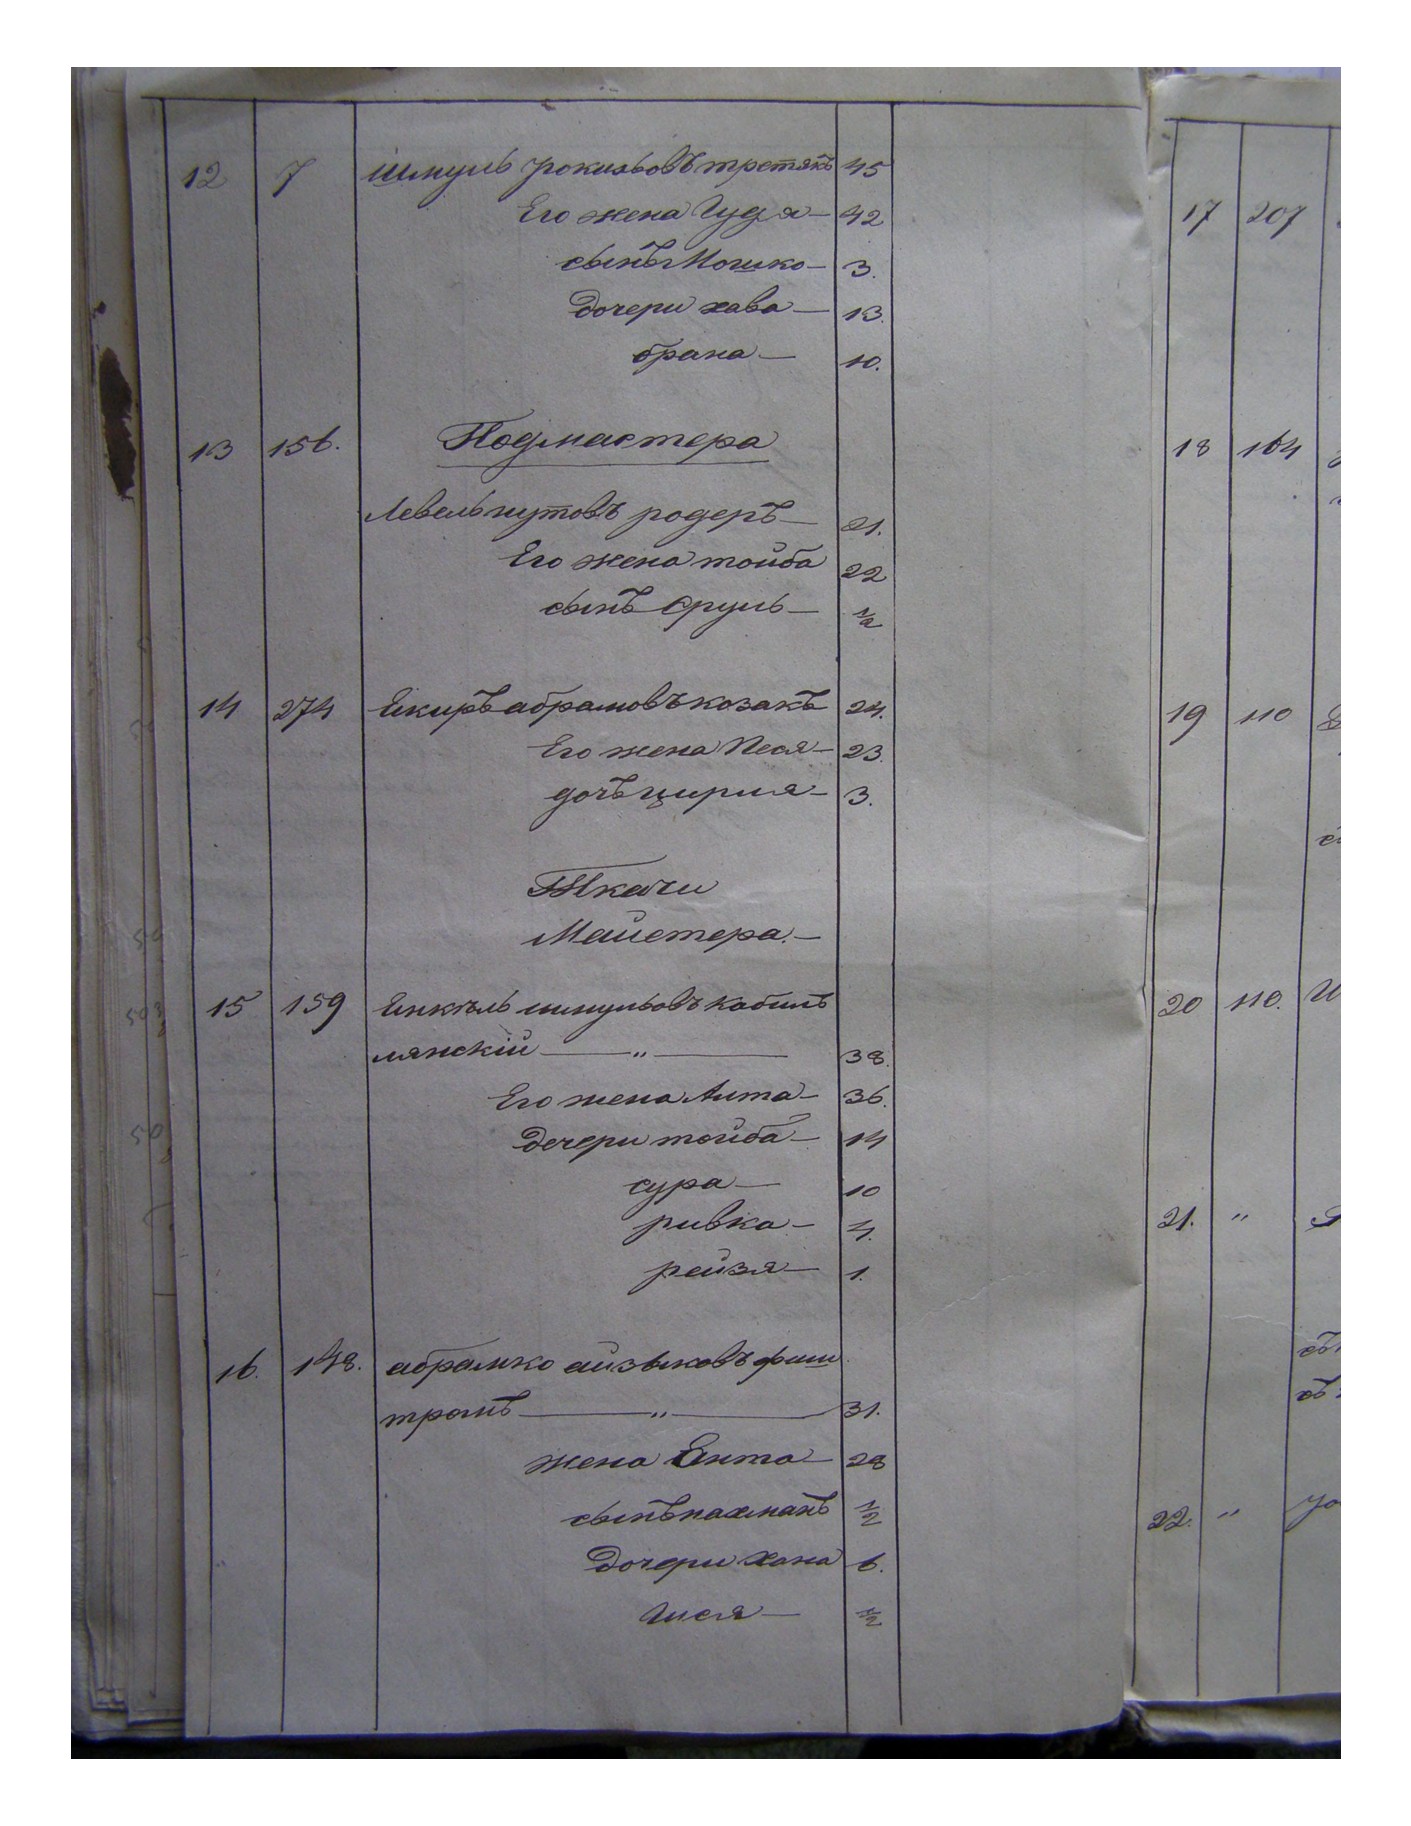 12 7 Шмуль Урокильовъ третякъ 45
Его жена Гудя — 42
сынъ Мошко — 3.
Дочери хава — 13.
брана — 10.
13 156. Подмастера
Левель нутовъ родеръ — 21.
Его жена тойба 22
сынъ Сруль — 1/2
14 274 Екиръ абрамовъ козакъ 24.
Его жена Песя — 23.
дочъ цирля — 3.
Ткачи
Майстера. —
15 159 Енкель шмульовъ Кобиль
лянскій — " — 38.
Его жена Алта — 36.
Дочери тойба — 14
сура — 10
ривка — 4.
рейзя — 1.
16. 148. абрамко айзыковъ фиш
тромъ — " — 31.
жена Ента — 28
сынъ нахманъ 1/2
Дочери Хана 6.
1/2
17 207
18 164
19 110
20 110. И
21. "
22. "